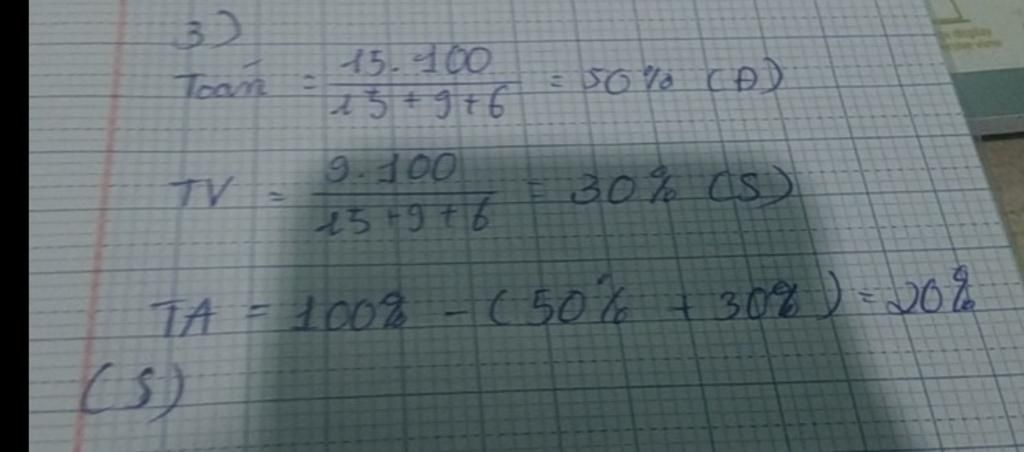 3)
Toán = 15.100 / 15+9+6 = 50% (Đ)
TV = 9.100 / 15+9+6 = 30% (S)
TA = 100% - (50% + 30%) = 20%
(S)